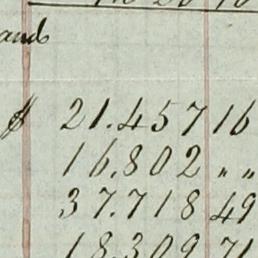 and
$ 21.457 16
16.802 „ „
37.718 49
18.309 71